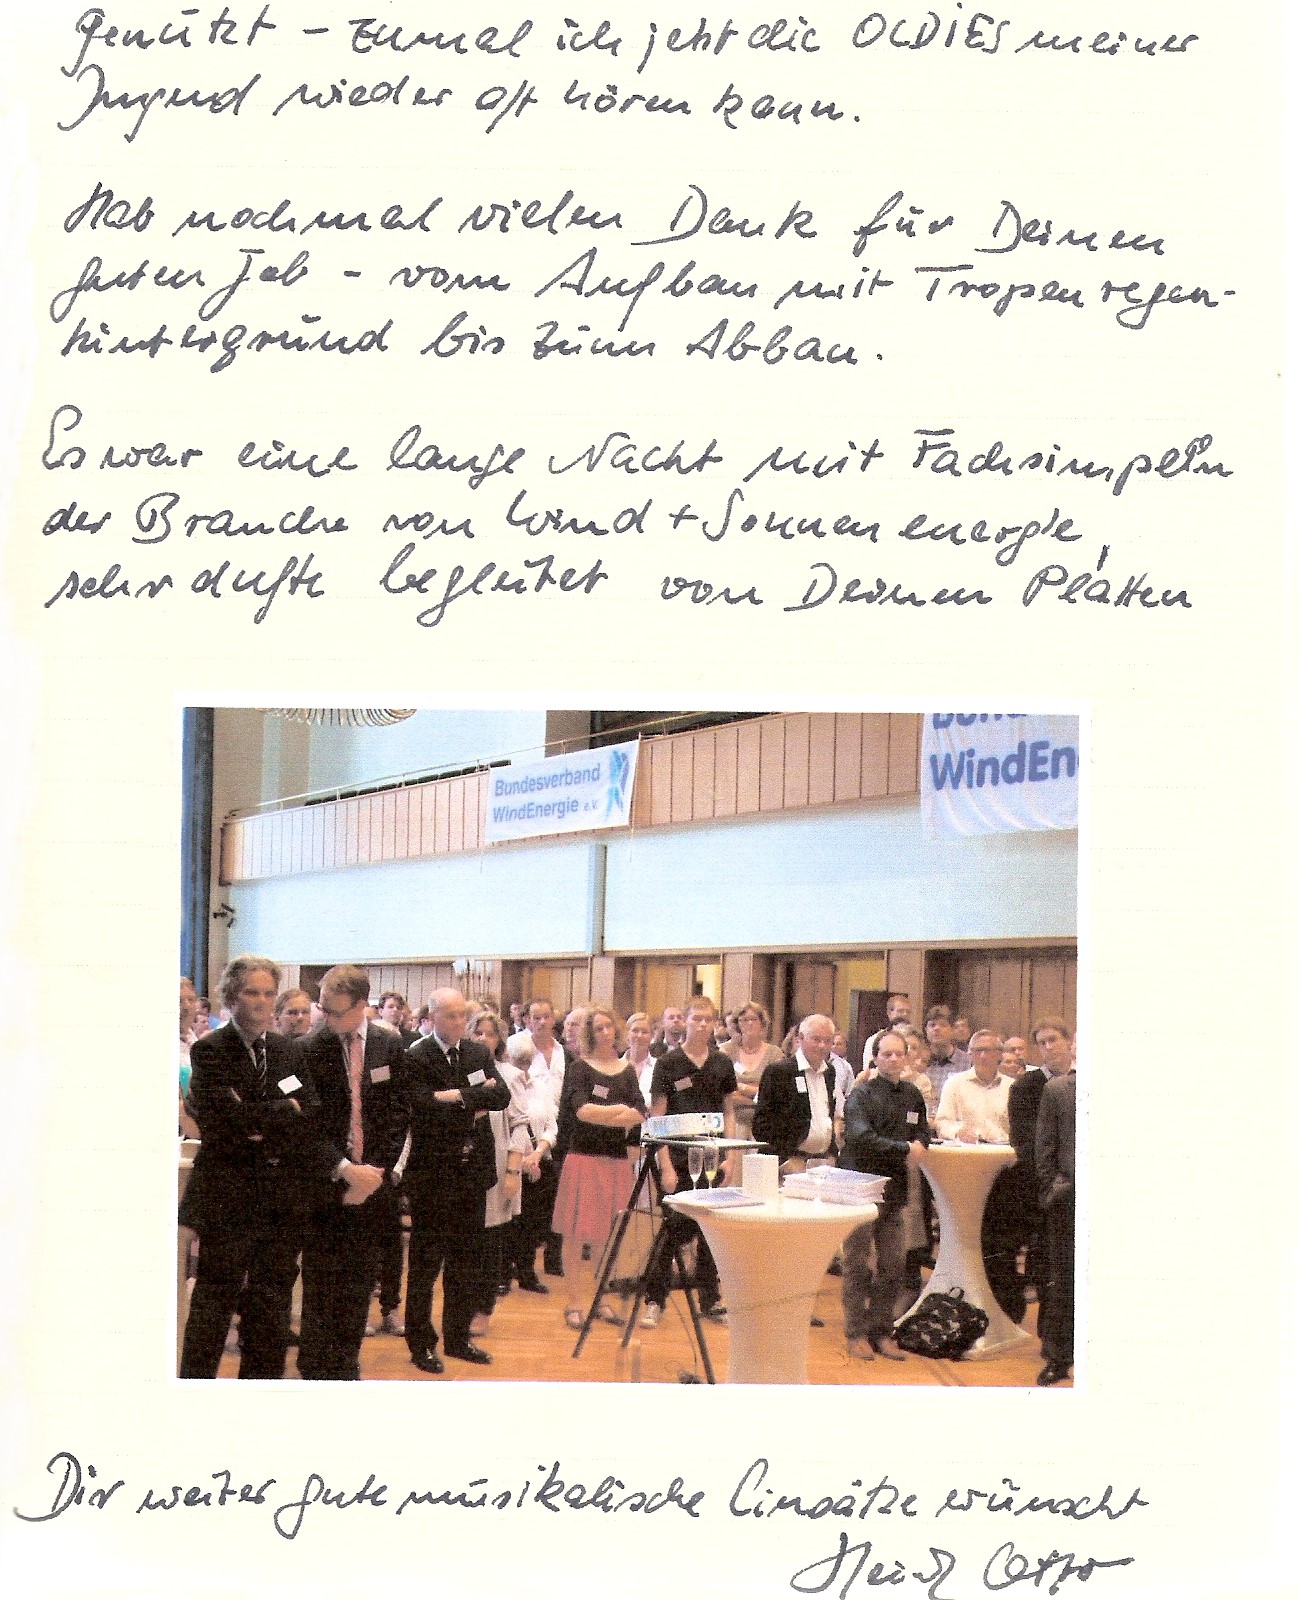 genützt - zumal ich jetzt die OLDIES meiner
Jugend wieder oft hören kann.
Hab nochmal vielen Dank für Deinen
guten Job - vom Aufbau mit Tropenregen-
hintergrund bis zum Abbau.
Es war eine lange Nacht mit Fachsimpeln
der Branche von Wind + Sonnenenergie,
sehr dufte begleitet von Deinen Platten
Bundesverband
WindEnergie e.V.
WindEn
Dir weiter gute musikalische Einsätze wünscht
Otto